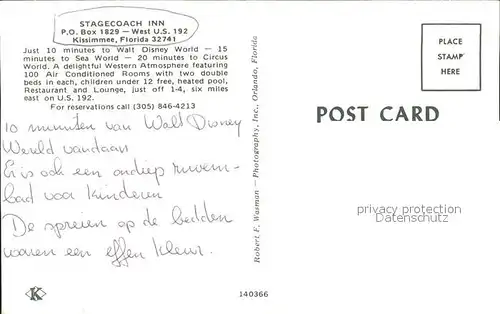 STAGECOACH INN
P.O. Box 1829 — West U.S. 192
Kissimmee, Florida 32741
Just 10 minutes to Walt Disney World — 15
minutes to Sea World — 20 minutes to Circus
World. A delightful Western Atmosphere featuring
100 Air Conditioned Rooms with two double
beds in each, children under 12 free, heated pool,
Restaurant and Lounge, just off 1-4, six miles
east on U.S. 192.
For reservations call (305) 846-4213
10 minuten van Walt Disney
Wereld vandaan
Er is ook een ondiep zwem-
bad voor kinderen
De spreien op de bedden
waren een effen kleur.
K
Robert F. Wasman — Photography, Inc., Orlando, Florida
140366
PLACE
STAMP
HERE
POST CARD
privacy protection
Datenschutz